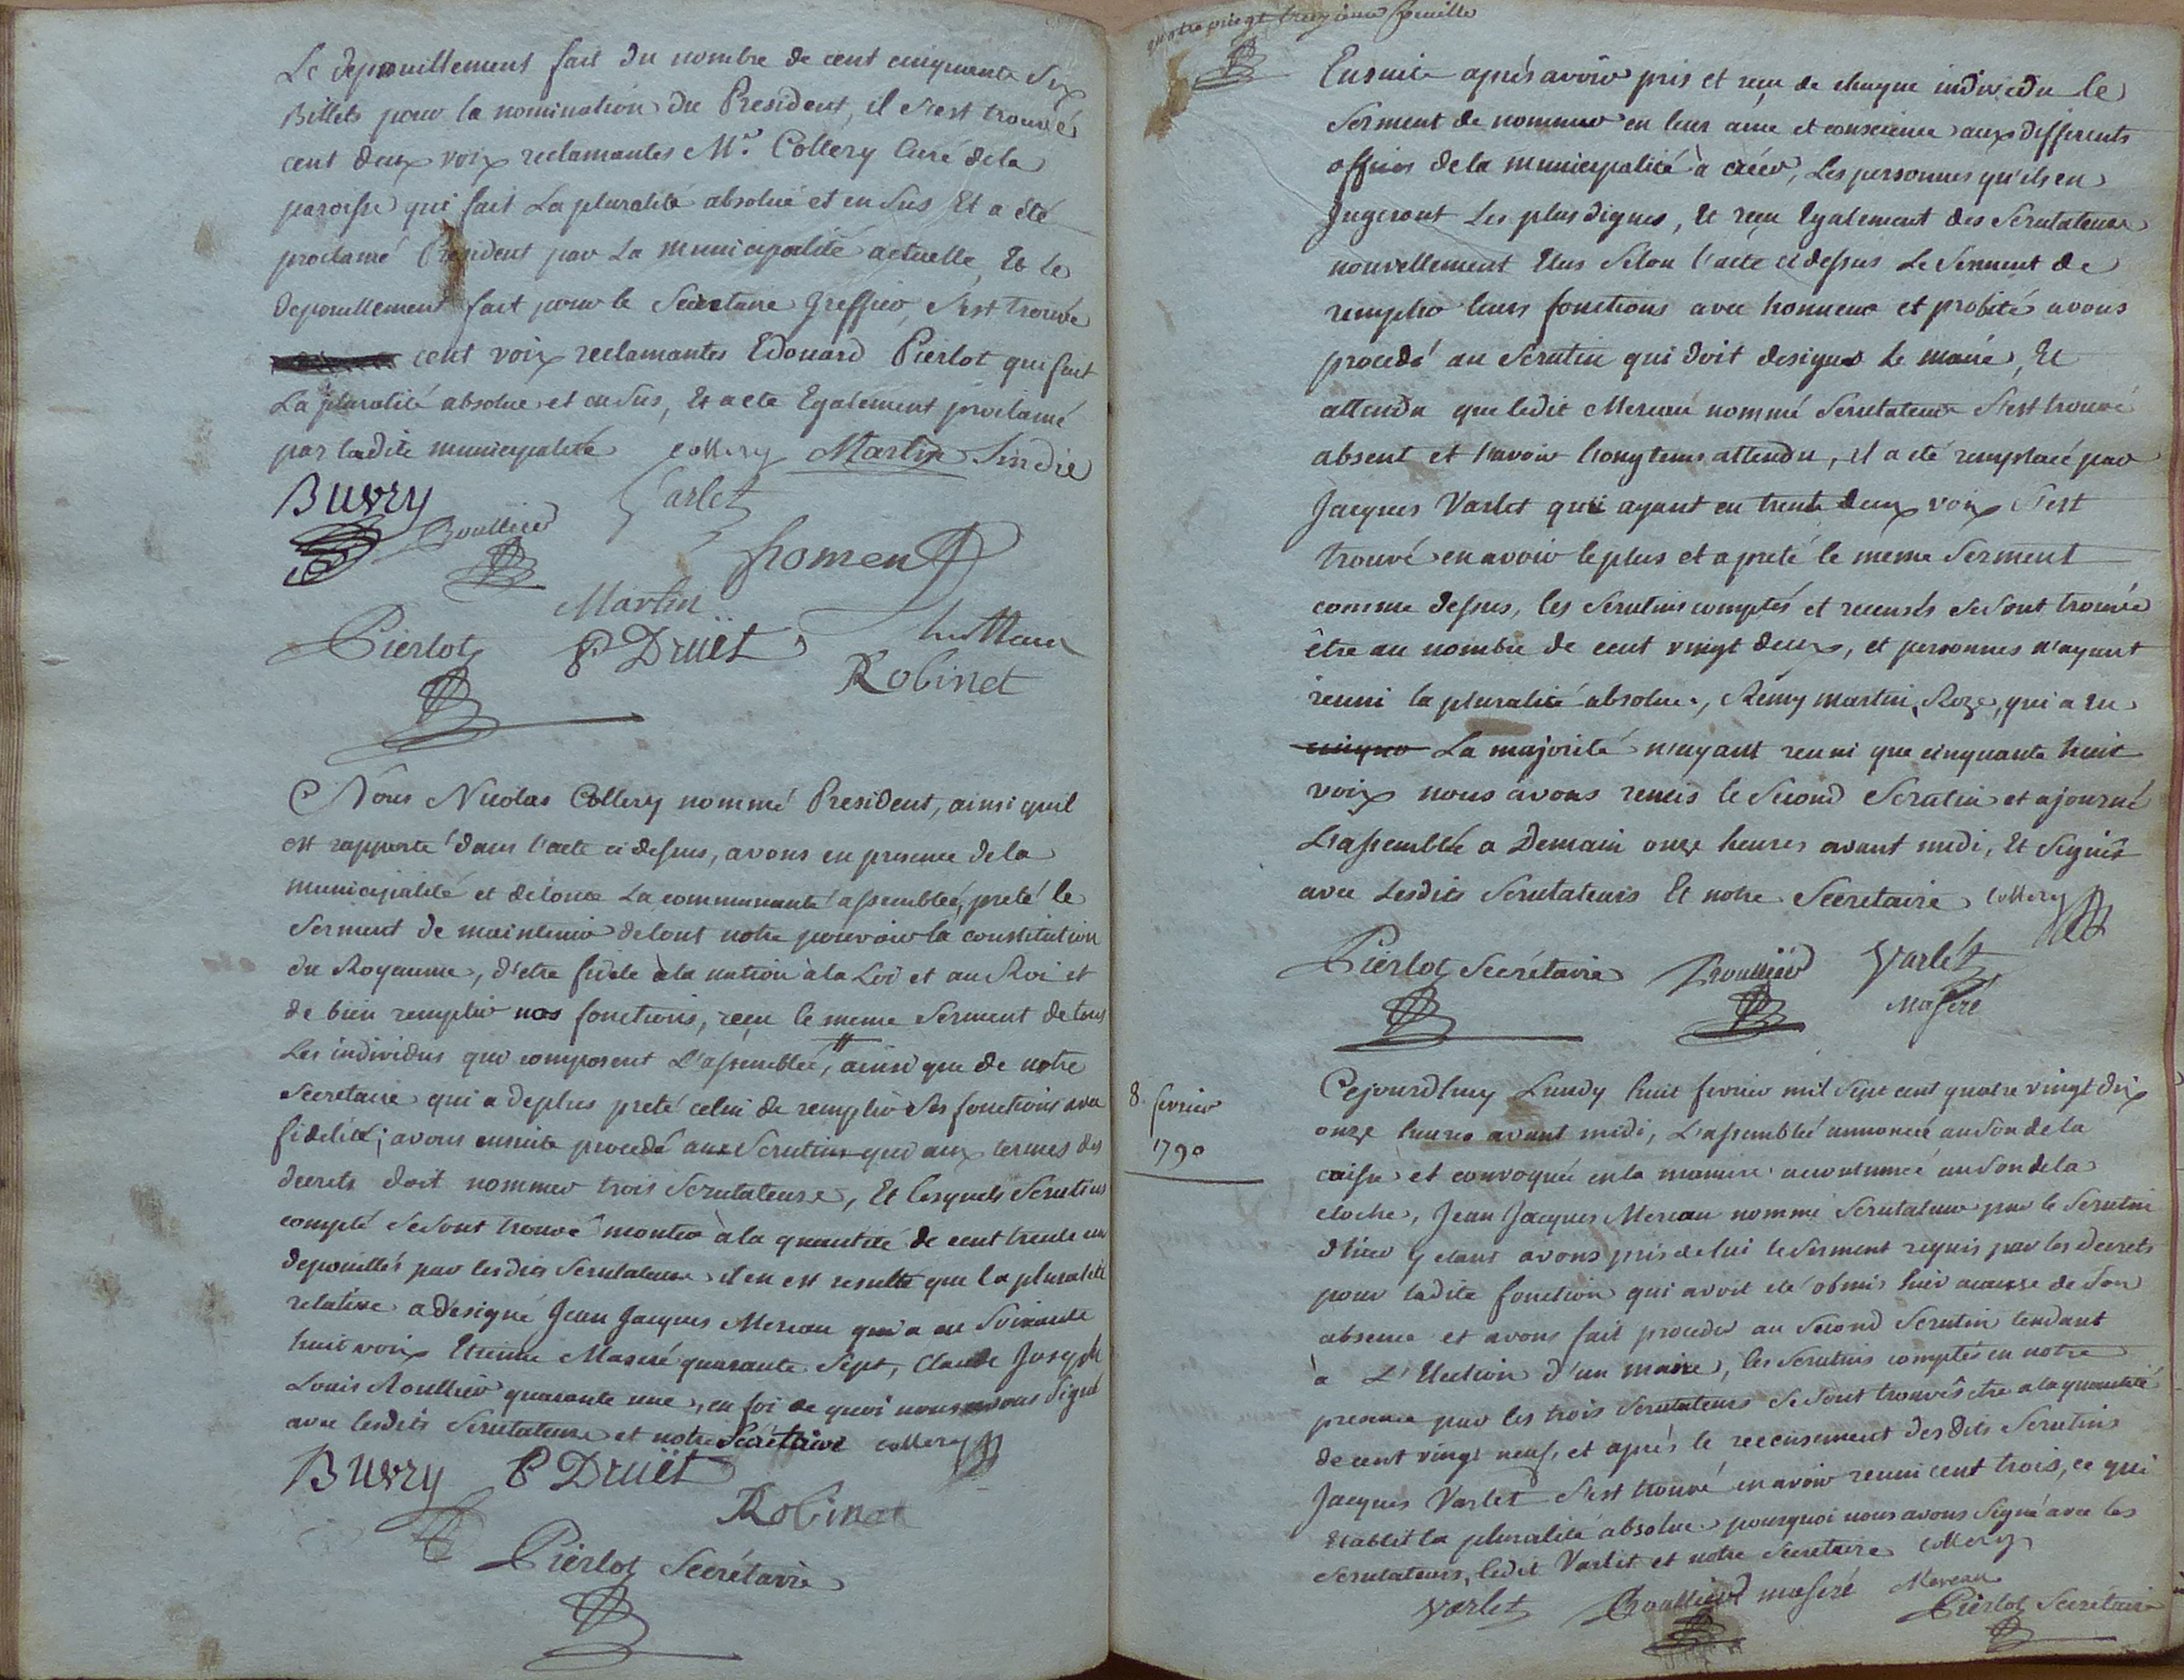 Le depouillement fait du nombre de cent cinquante Six
Billets pour la nomination du President, il s'est trouvé
cent deux voix reclamantes Mr. Collery Curé de la
paroisse qui fait La pluralité absolué et en Sus Et a été
proclamé President par La municipalité actuelle, Et le
depouillement fait pour le Secretaire Greffier, S'est trouvé
cent voix reclamantes Edouard Pierlot qui fait
La pluralité absolue et en Sus, Et a eté Egalement proclamé
par ladite municipalité Collery Martin Sindic
Buvry
Roullier
Varlet
froment
Martin
Pierlot P Druët
Robinet
Nous Nicolas Collery nommé President, ainsi quil
est rapporté dans l'acte ci dessus, avons en presence de la
municipalité et de toute La communauté assemblée, preté le
Serment de maintenir de tout notre pouvoir la constitution
du Royaume, d'etre fidele à la nation à la Loi et au Roi et
de bien remplir nos fonctions, reçu le meme Serment de tous
Les individus qui composent L'assemblée, ainsi que de notre
Secretaire qui a de plus preté celui de remplir Ses fonctions avec
fidelité; avons ensuite procedé aux Scrutins qui aux termes des
decrets doit nommer trois Scrutateurs, Et lesquels Scrutins
compté se sont trouvé monter à la quantité de cent trente un
depouillés par lesdits Scrutateurs il en est resulté que la pluralité
relative a designé Jean Jacques Mereau qui a eu Soixante
huit voix Etienne Maseré quarante Sept, Claude Joseph
Louis Roullier quarante une, en foi de quoi nous avons signé
avec lesdits Scrutateurs et notre Secrétaire Collery
Buvry P Druët
Robinet
Pierlot Secrétaire
quatre vingt treizieme feuille
Ensuite après avoir pris et reçu de chaque individu le
Serment de nommer en leur ame et conscience aux differents
offices de la municipalité à créer, Les personnes qu'ils en
Jugeront Les plus dignes, Et reçu Egalement des Scrutateurs
nouvellement Elus Selon l'acte ci dessus Le Serment de
remplir leurs fonctions avec honneur et probité avons
procedé au Scrutin qui doit designer Le maire, Et
attendu que ledit Mereau nommé Scrutateur S'est trouvé
absent et l'avoir Longtems attendu, il a eté remplacé par
Jacques Varlet qui ayant eu trente deux voix S'est
trouvé en avoir le plus et a preté le même Serment
comme dessus, les Scrutins comptés et recensés se sont trouvés
être au nombre de cent vingt deux, et personnes n'ayant
reuni la pluralité absolue, Remy Martin Roze, qui a eu
La majorité n'ayant reuni que cinquante huit
voix nous avons remis le Second Scrutin et ajourné
L'assemblée a Demain onze heures avant midi, Et Signés
avec Lesdits Scrutateurs Et notre Secretaire Collery
Pierlot Secrétaire Roullier Varlet
Maseré
8. fevrier
1790
Cejourdhuy Lundy huit fevrier mil Sept cent quatre vingt dix
onze heures avant midi, L'assemblée annoncée au Son de la
caisse et convoquée en la maniere accoutumée au Son de la
cloche, Jean Jacques Mereau nommé Scrutateur par le Scrutin
d'hier y etant avons pris de lui le Serment requis par les decrets
pour ladite fonction qui avoit eté obmis hier acause de Son
absence et avons fait proceder au Second Scrutin tendant
à L'Election d'un maire, les Scrutins comptés en notre
presence par les trois Scrutateurs se sont trouvés etre a la quantité
de cent vingt neuf, et après le recensement desdits Scrutins
Jacques Varlet S'est trouvé en avoir reuni cent trois, ce qui
Etablit la pluralité absolue pourquoi nous avons Signé avec les
Scrutateurs, ledit Varlet et notre Secretaire Collery
Varlet Roullier maseré Mereau
Pierlot Secrétaire